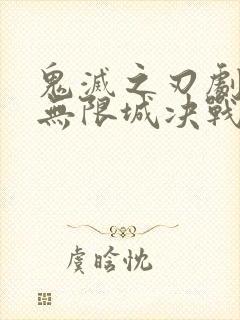 鬼滅之刃劇
無限城决戰
虞晗忱